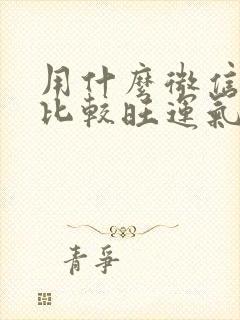 用什麼微信
比較旺運氣
青爭